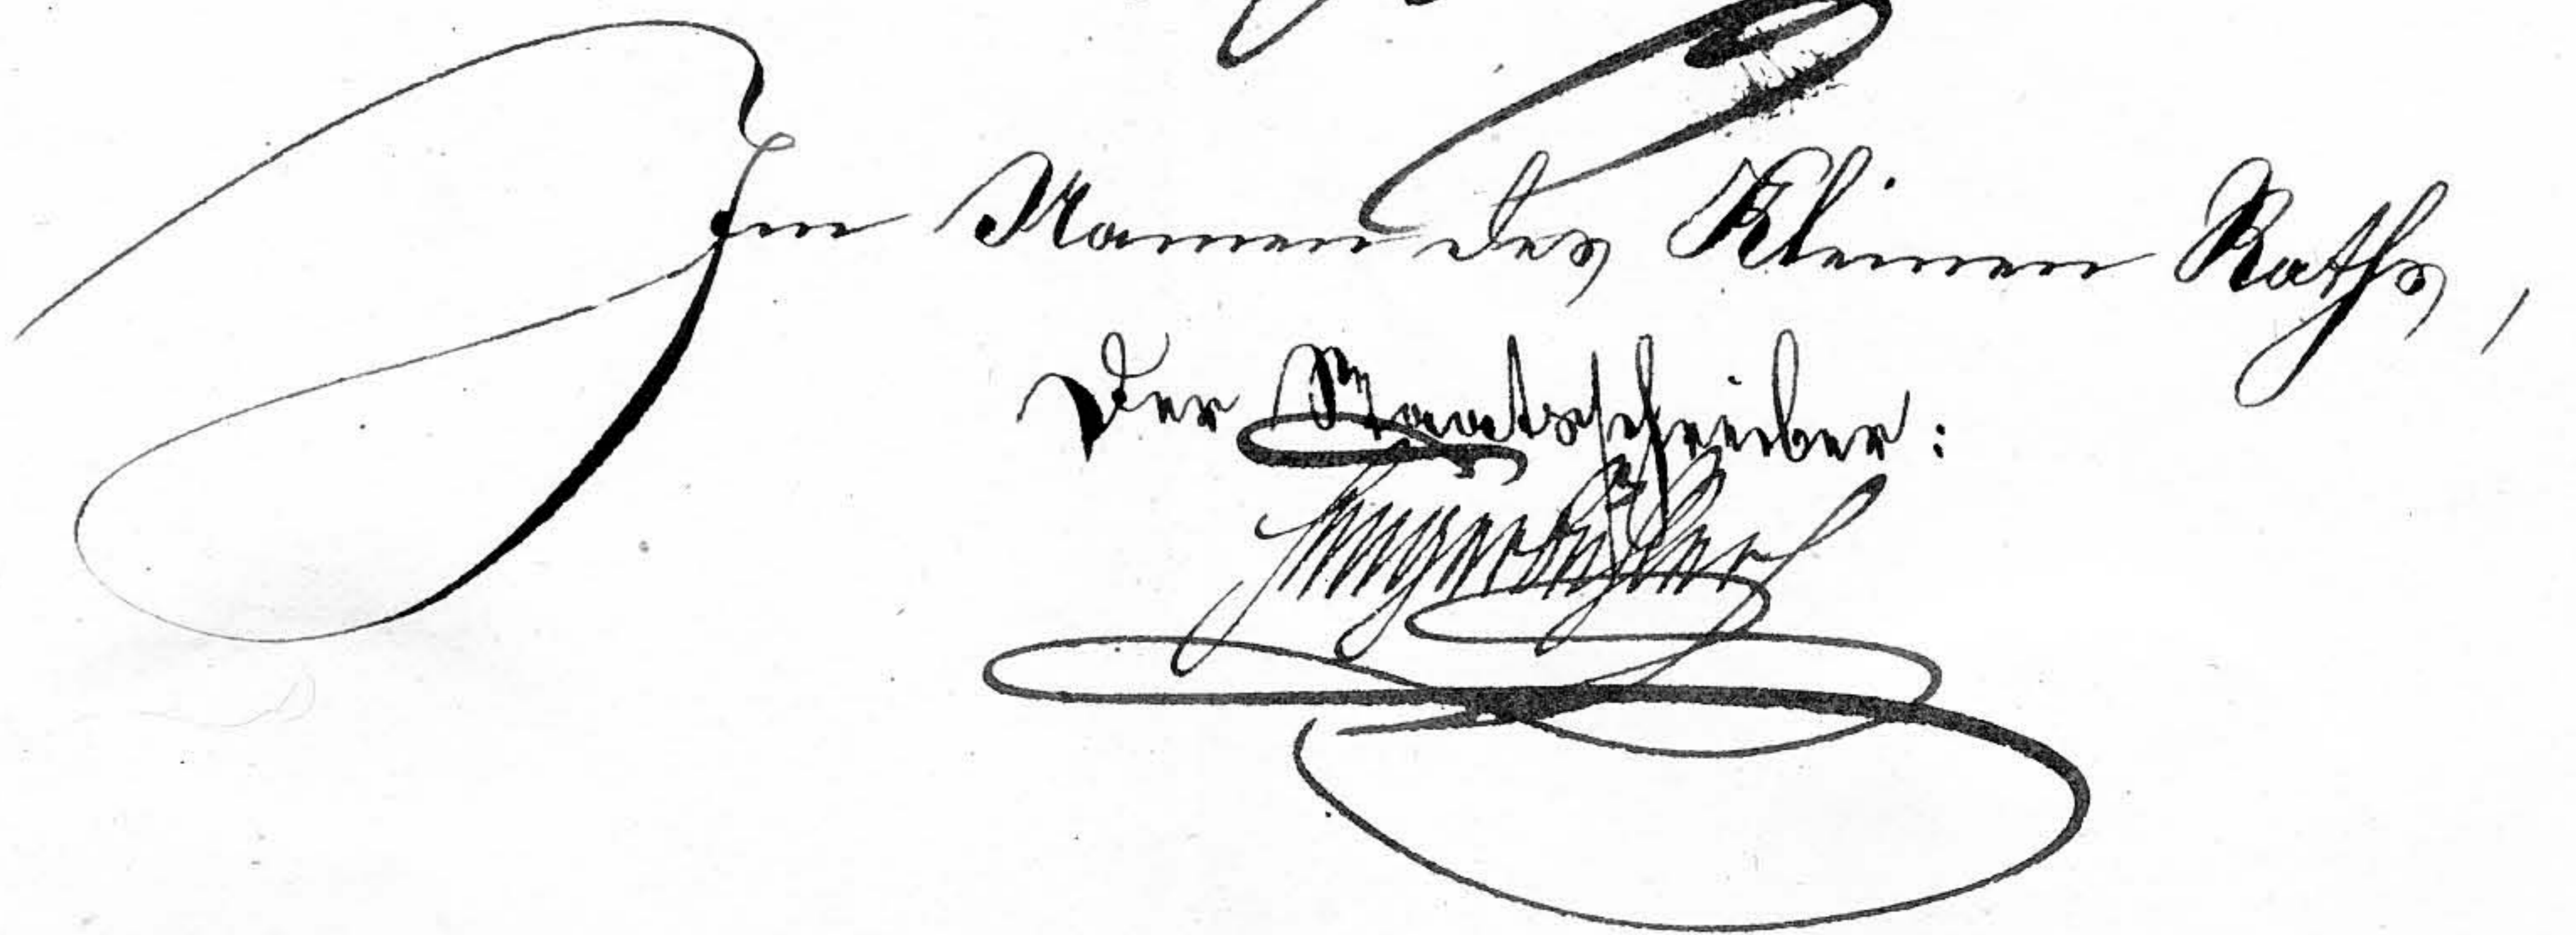 Im Namen des Kleinen Raths,
Der Staatsschreiber: